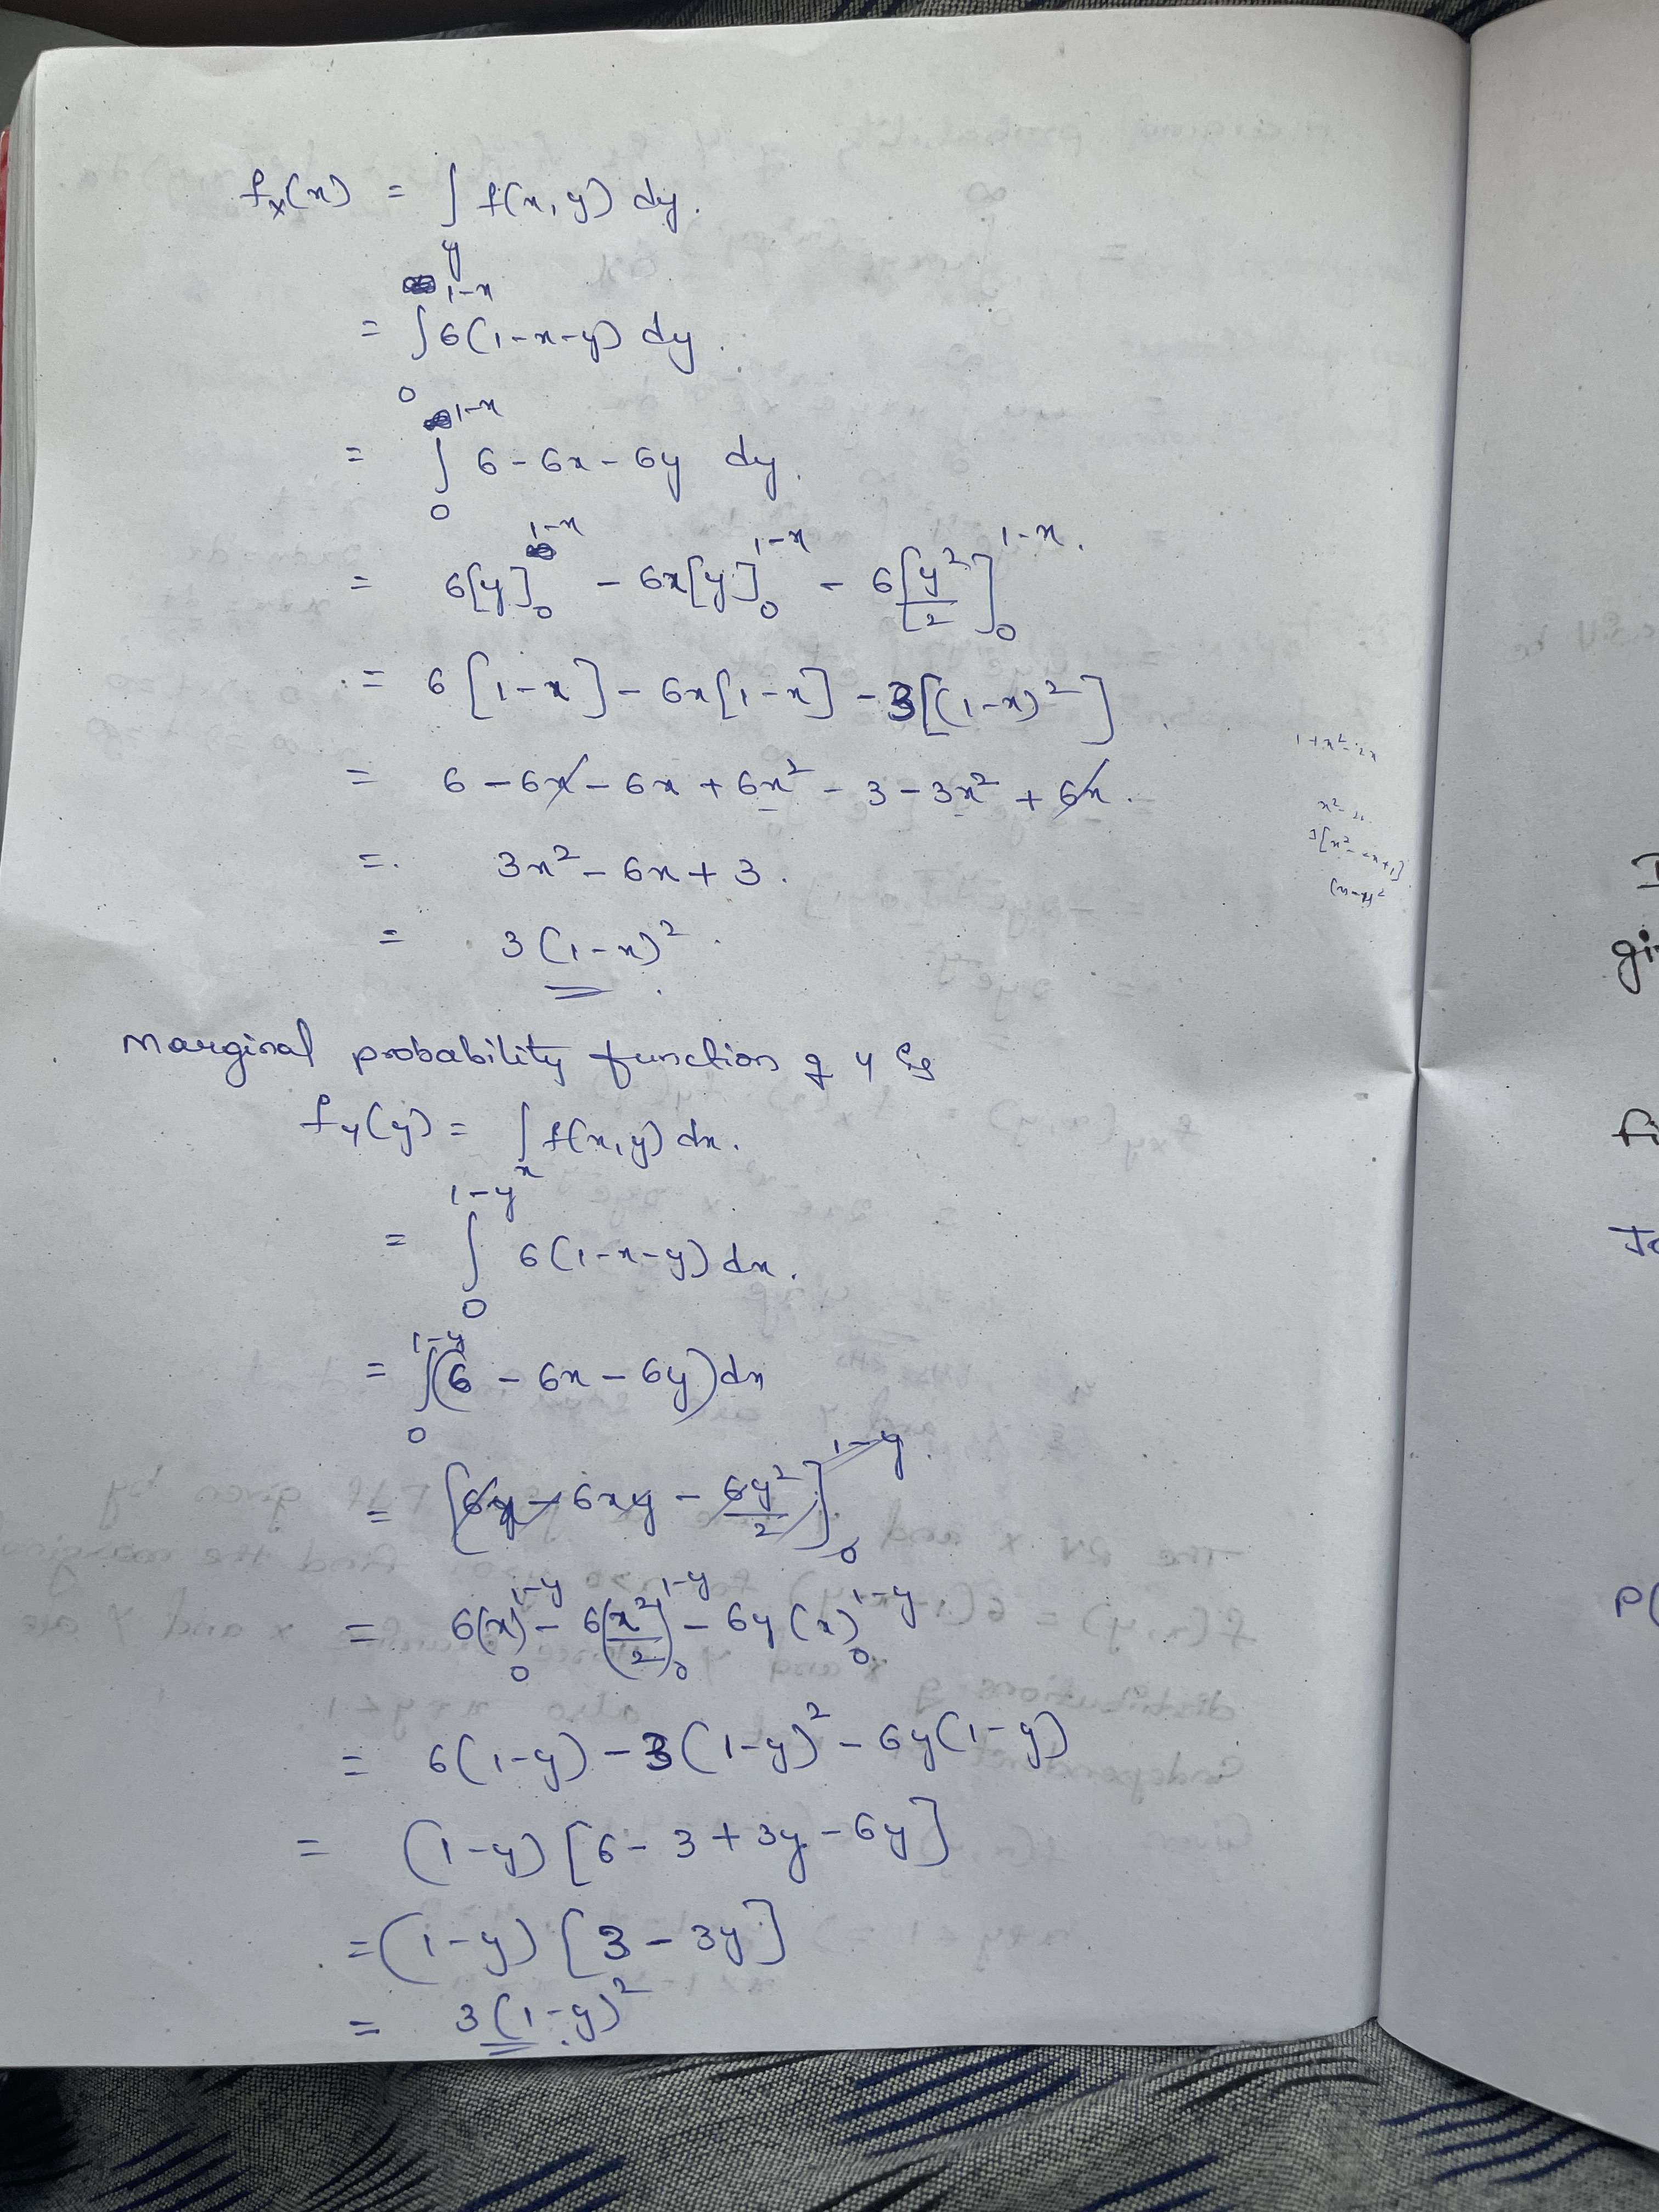 fx(x) = ∫ f(x, y) dy.
y
1-x
= ∫ 6(1-x-y) dy.
0
1-x
= ∫ 6 - 6x - 6y dy.
0
= 6[y]₀^{1-x} - 6x[y]₀^{1-x} - 6[y²/2]₀^{1-x}.
= 6[1-x] - 6x[1-x] - 3[(1-x)²].
1+x²-2x
= 6 - 6x - 6x + 6x² - 3 - 3x² + 6x.
=. 3x² - 6x + 3.
= 3(1-x)².
Marginal probability function of Y is
fy(y) = ∫ f(x,y) dx.
x
1-y
= ∫ 6(1-x-y) dx.
0
1-y
= ∫(6 - 6x - 6y) dx
0
= [6y - 6xy - 6y²/2]₀^{1-y}.
= 6(x)₀^{1-y} - 6(x²/2)₀^{1-y} - 6y(x)₀^{1-y}
= 6(1-y) - 3(1-y)² - 6y(1-y)
= (1-y)[6 - 3 + 3y - 6y]
= (1-y)[3 - 3y]
= 3(1-y)²
gi
fi
P(